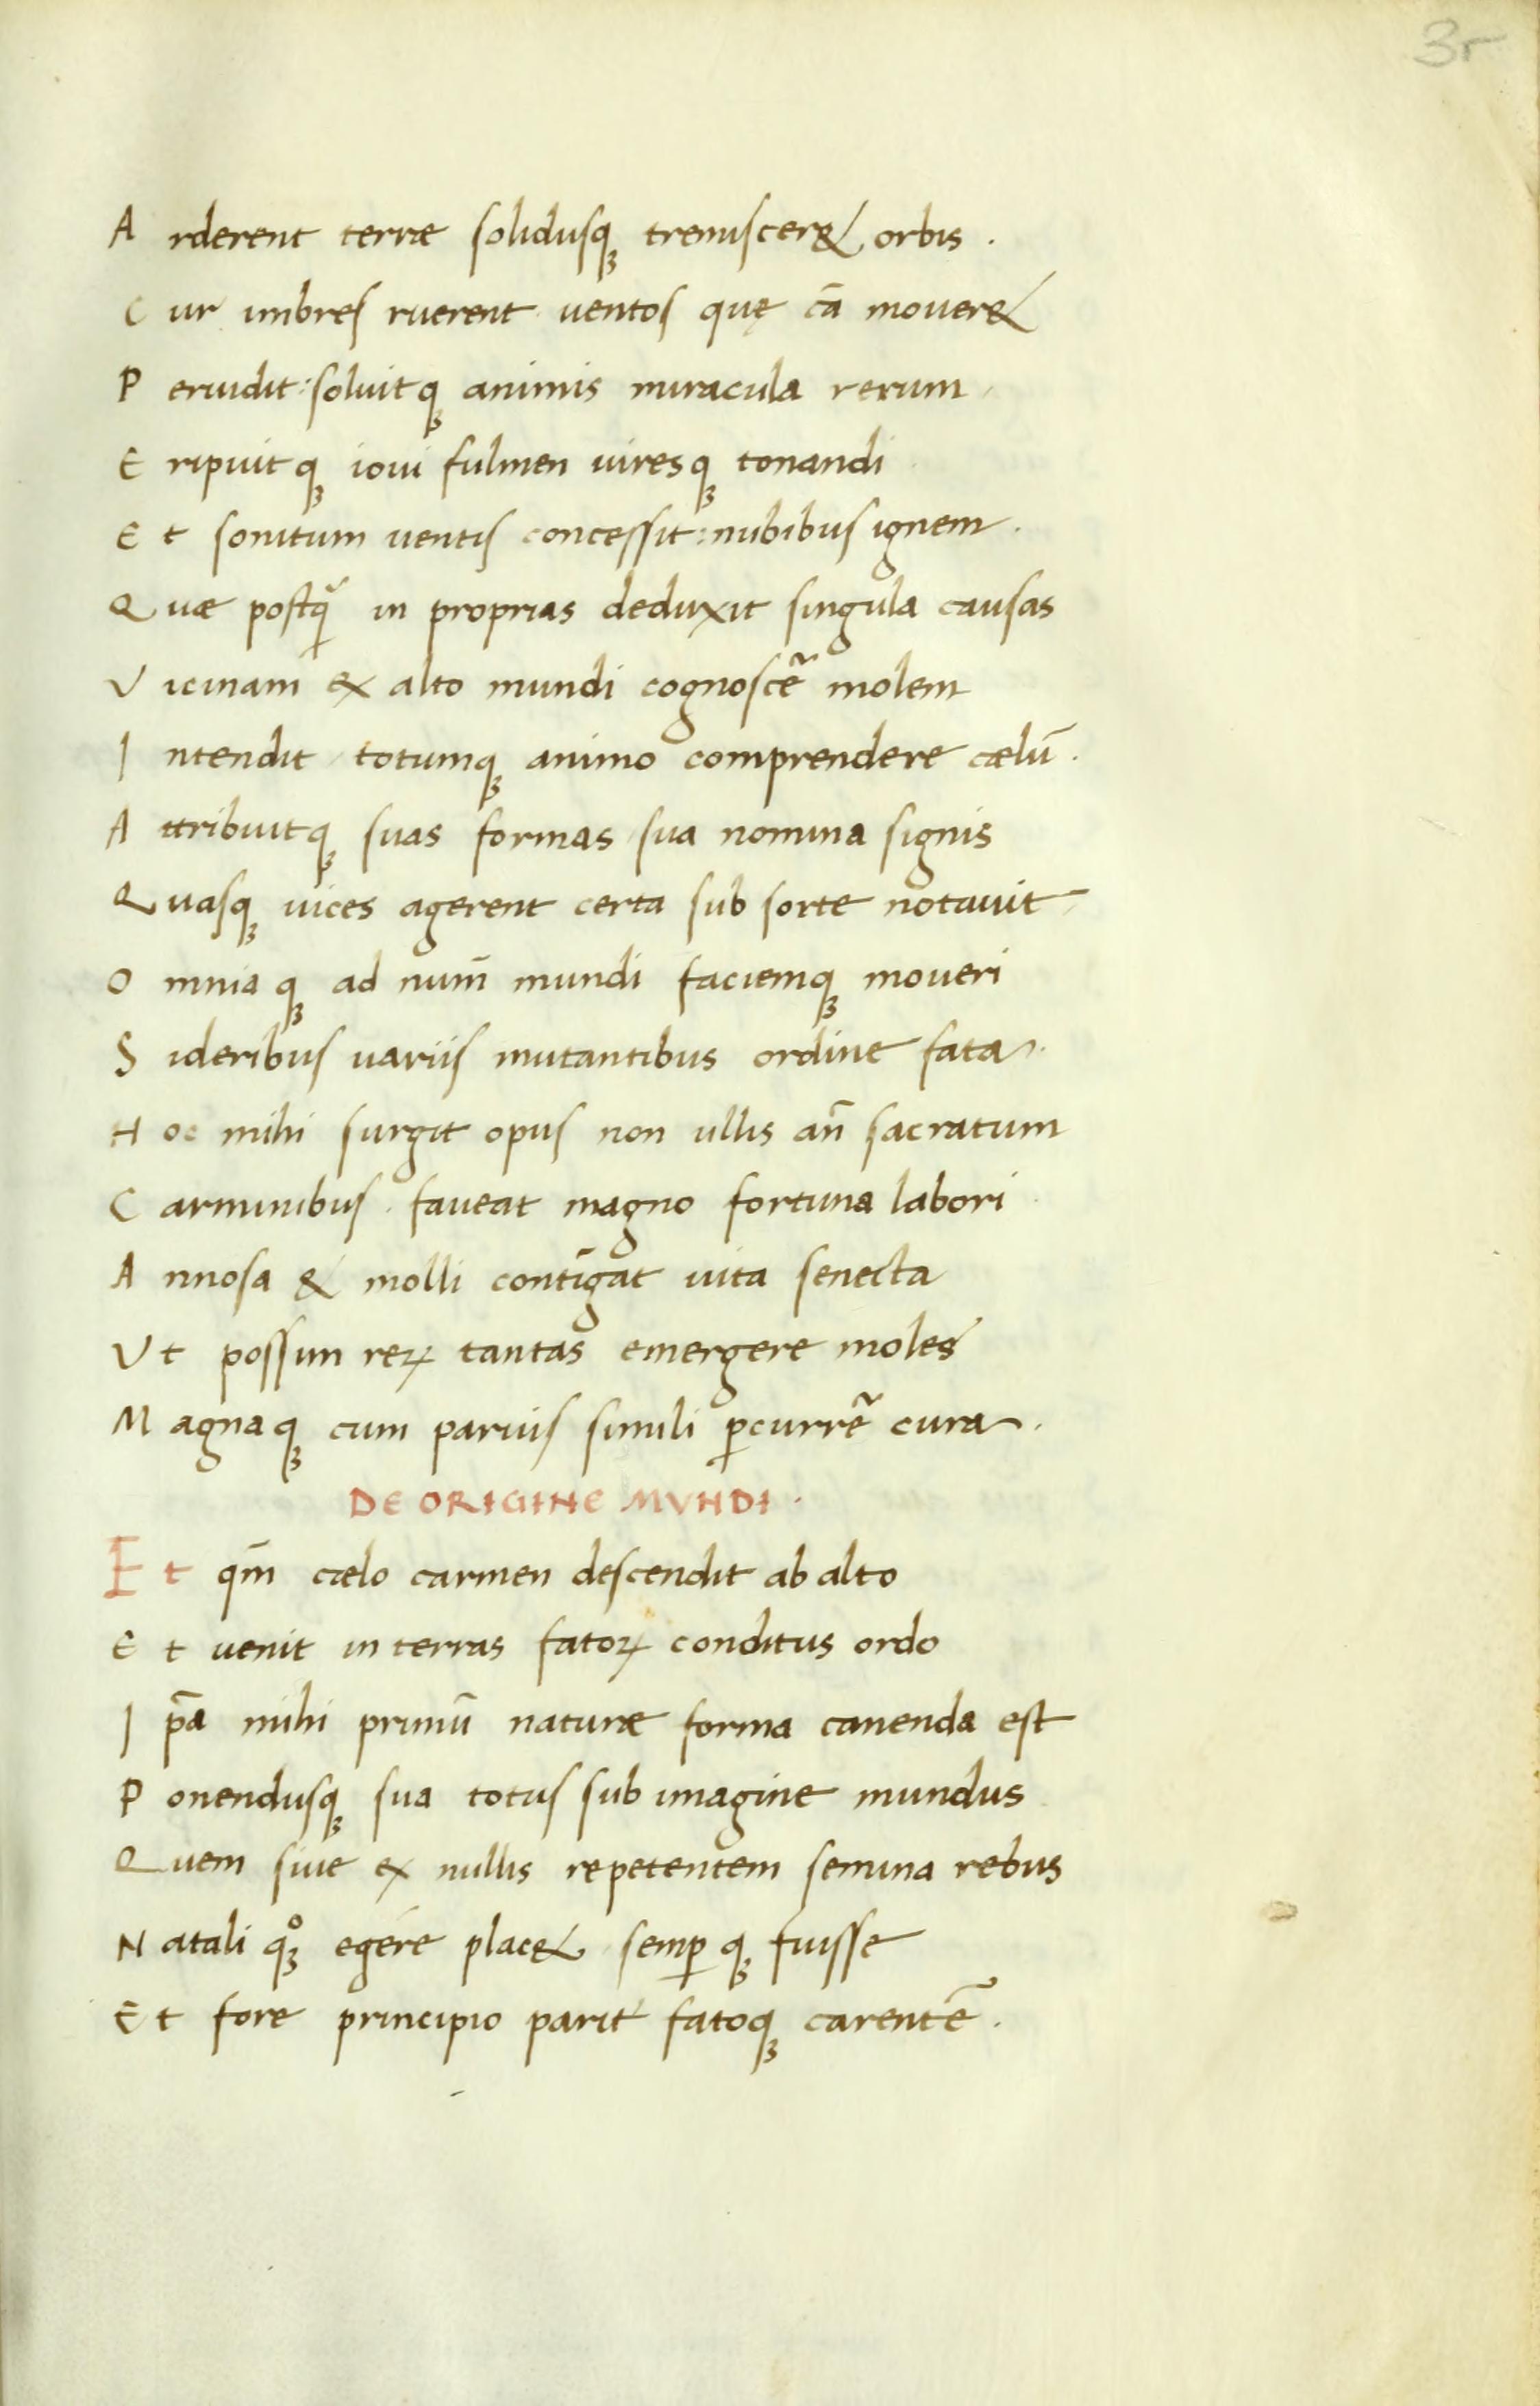 3r
A rderent terræ solidusq; tremiscer& orbis .
C ur imbres ruerent uentos quę cā mouer&
P eruidit : soluitq; animis miracula rerum .
E ripuitq; ioui fulmen uiresq; tonandi
E t sonitum uentis concessit : nubibus ignem .
Q uæ postq̃ in proprias deduxit singula causas
V icinam ex alto mundi cognoscẽ molem
I ntendit totumq; animo comprendere cælū .
A ttribuitq; suas formas sua nomina signis
Q uasq; uices agerent certa sub sorte notauit
O mniaq; ad num̄ mundi faciemq; moueri
S ideribus uariis mutantibus ordine fata .
H oc mihi surgit opus non ullis an̄ sacratum
C arminibus . faueat magno fortuna labori .
A nnosa & molli contīgat uita senecta
V t possim reꝝ tantas emergere moles
M agnaq; cum paruis simili ꝑcurrẽ cura .
DE ORIGINE MVNDI .
E t qm̄ cælo carmen descendit ab alto
E t uenit in terras fatoꝝ conditus ordo
I p̄a mihi primū naturæ forma canenda est
P onendusq; sua totus sub imagine mundus
Q uem siue ex nullis repetentem semina rebus
N atali qͦ; egere plac& semꝑq; fuisse
E t fore principio parit' fatoq; carentē .